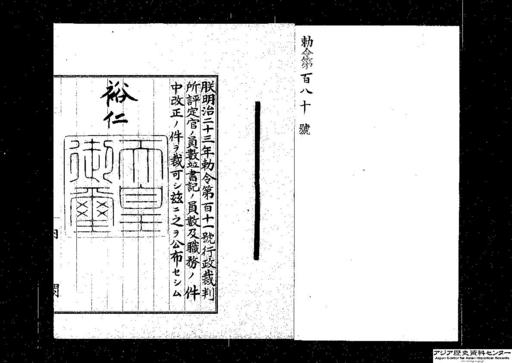 勅令第百八十號
朕明治二十三年勅令第百十一號行政裁判
所評定官ノ員數竝書記ノ員數及職務ノ件
中改正ノ件ヲ裁可シ茲ニ之ヲ公布セシム
裕仁
天皇御璽
内閣
アジア歴史資料センター
Japan Center for Asian Historical Records